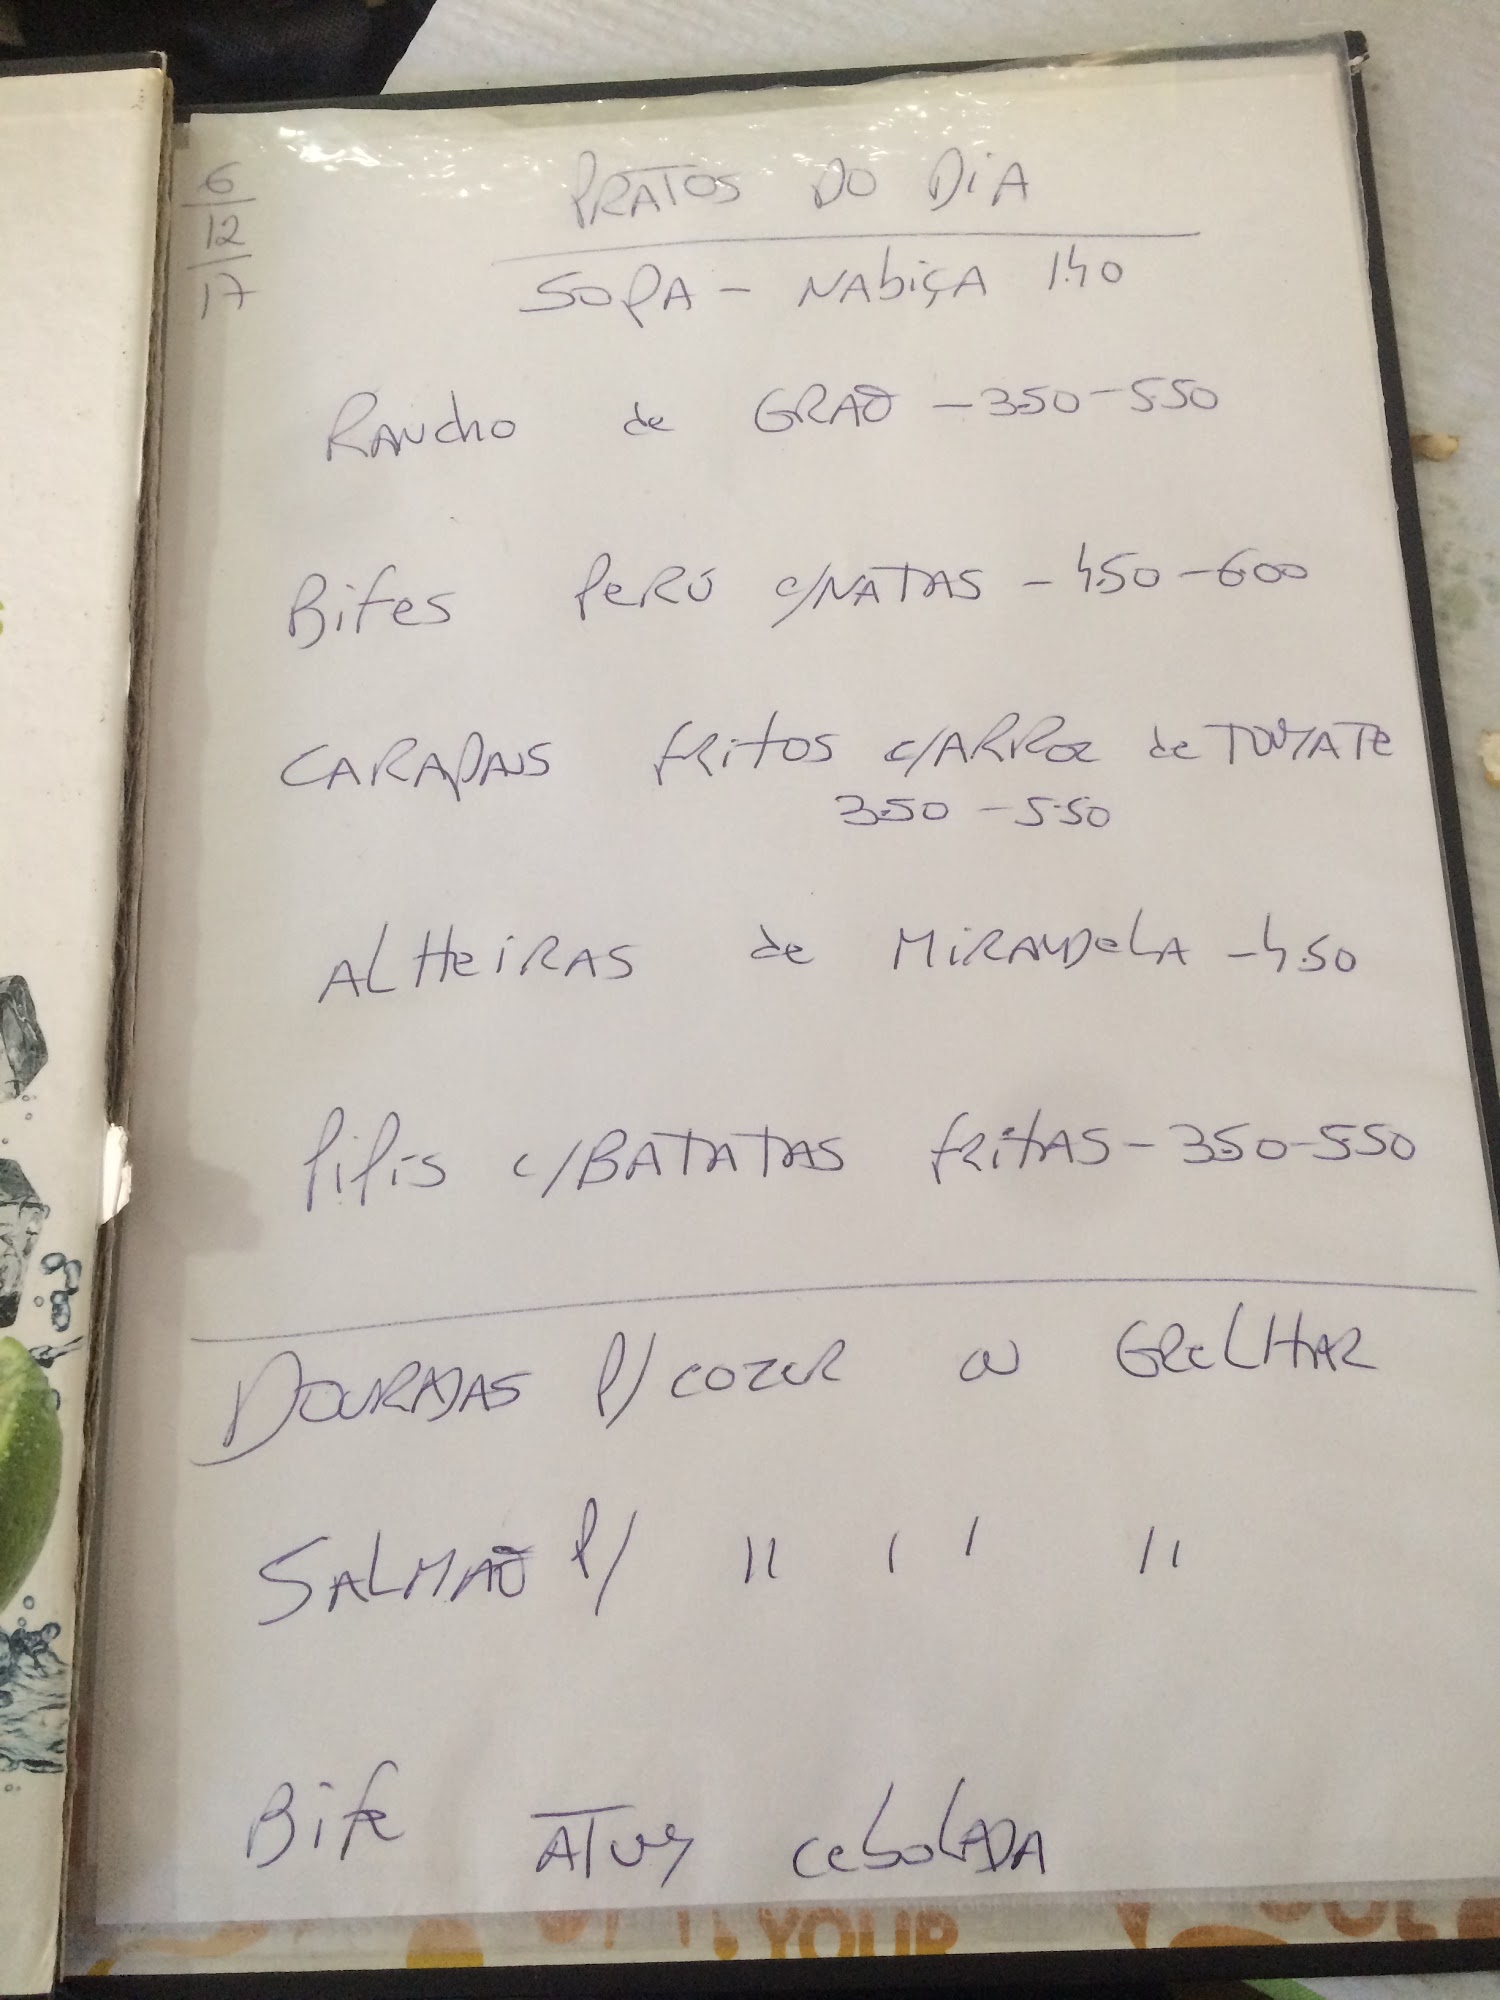 6
12
17
PRATOS DO DIA
SOPA - NABIÇA 1.40
RANCHO de GRAÕ - 3.50 - 5.50
Bifes PERÚ c/NATAS - 4.50 - 6.00
CARAPAUS fritos c/ARROZ de TOMATE
3.50 - 5.50
ALHEIRAS de MIRANDELA - 4.50
PiPis c/BATATAS fritAS - 3.50 - 5.50
DOURADAS P/ COZER OU GRELHAR
SALMAÕ P/ " ' ' "
Bife ATUM CEBOLADA
YOUR